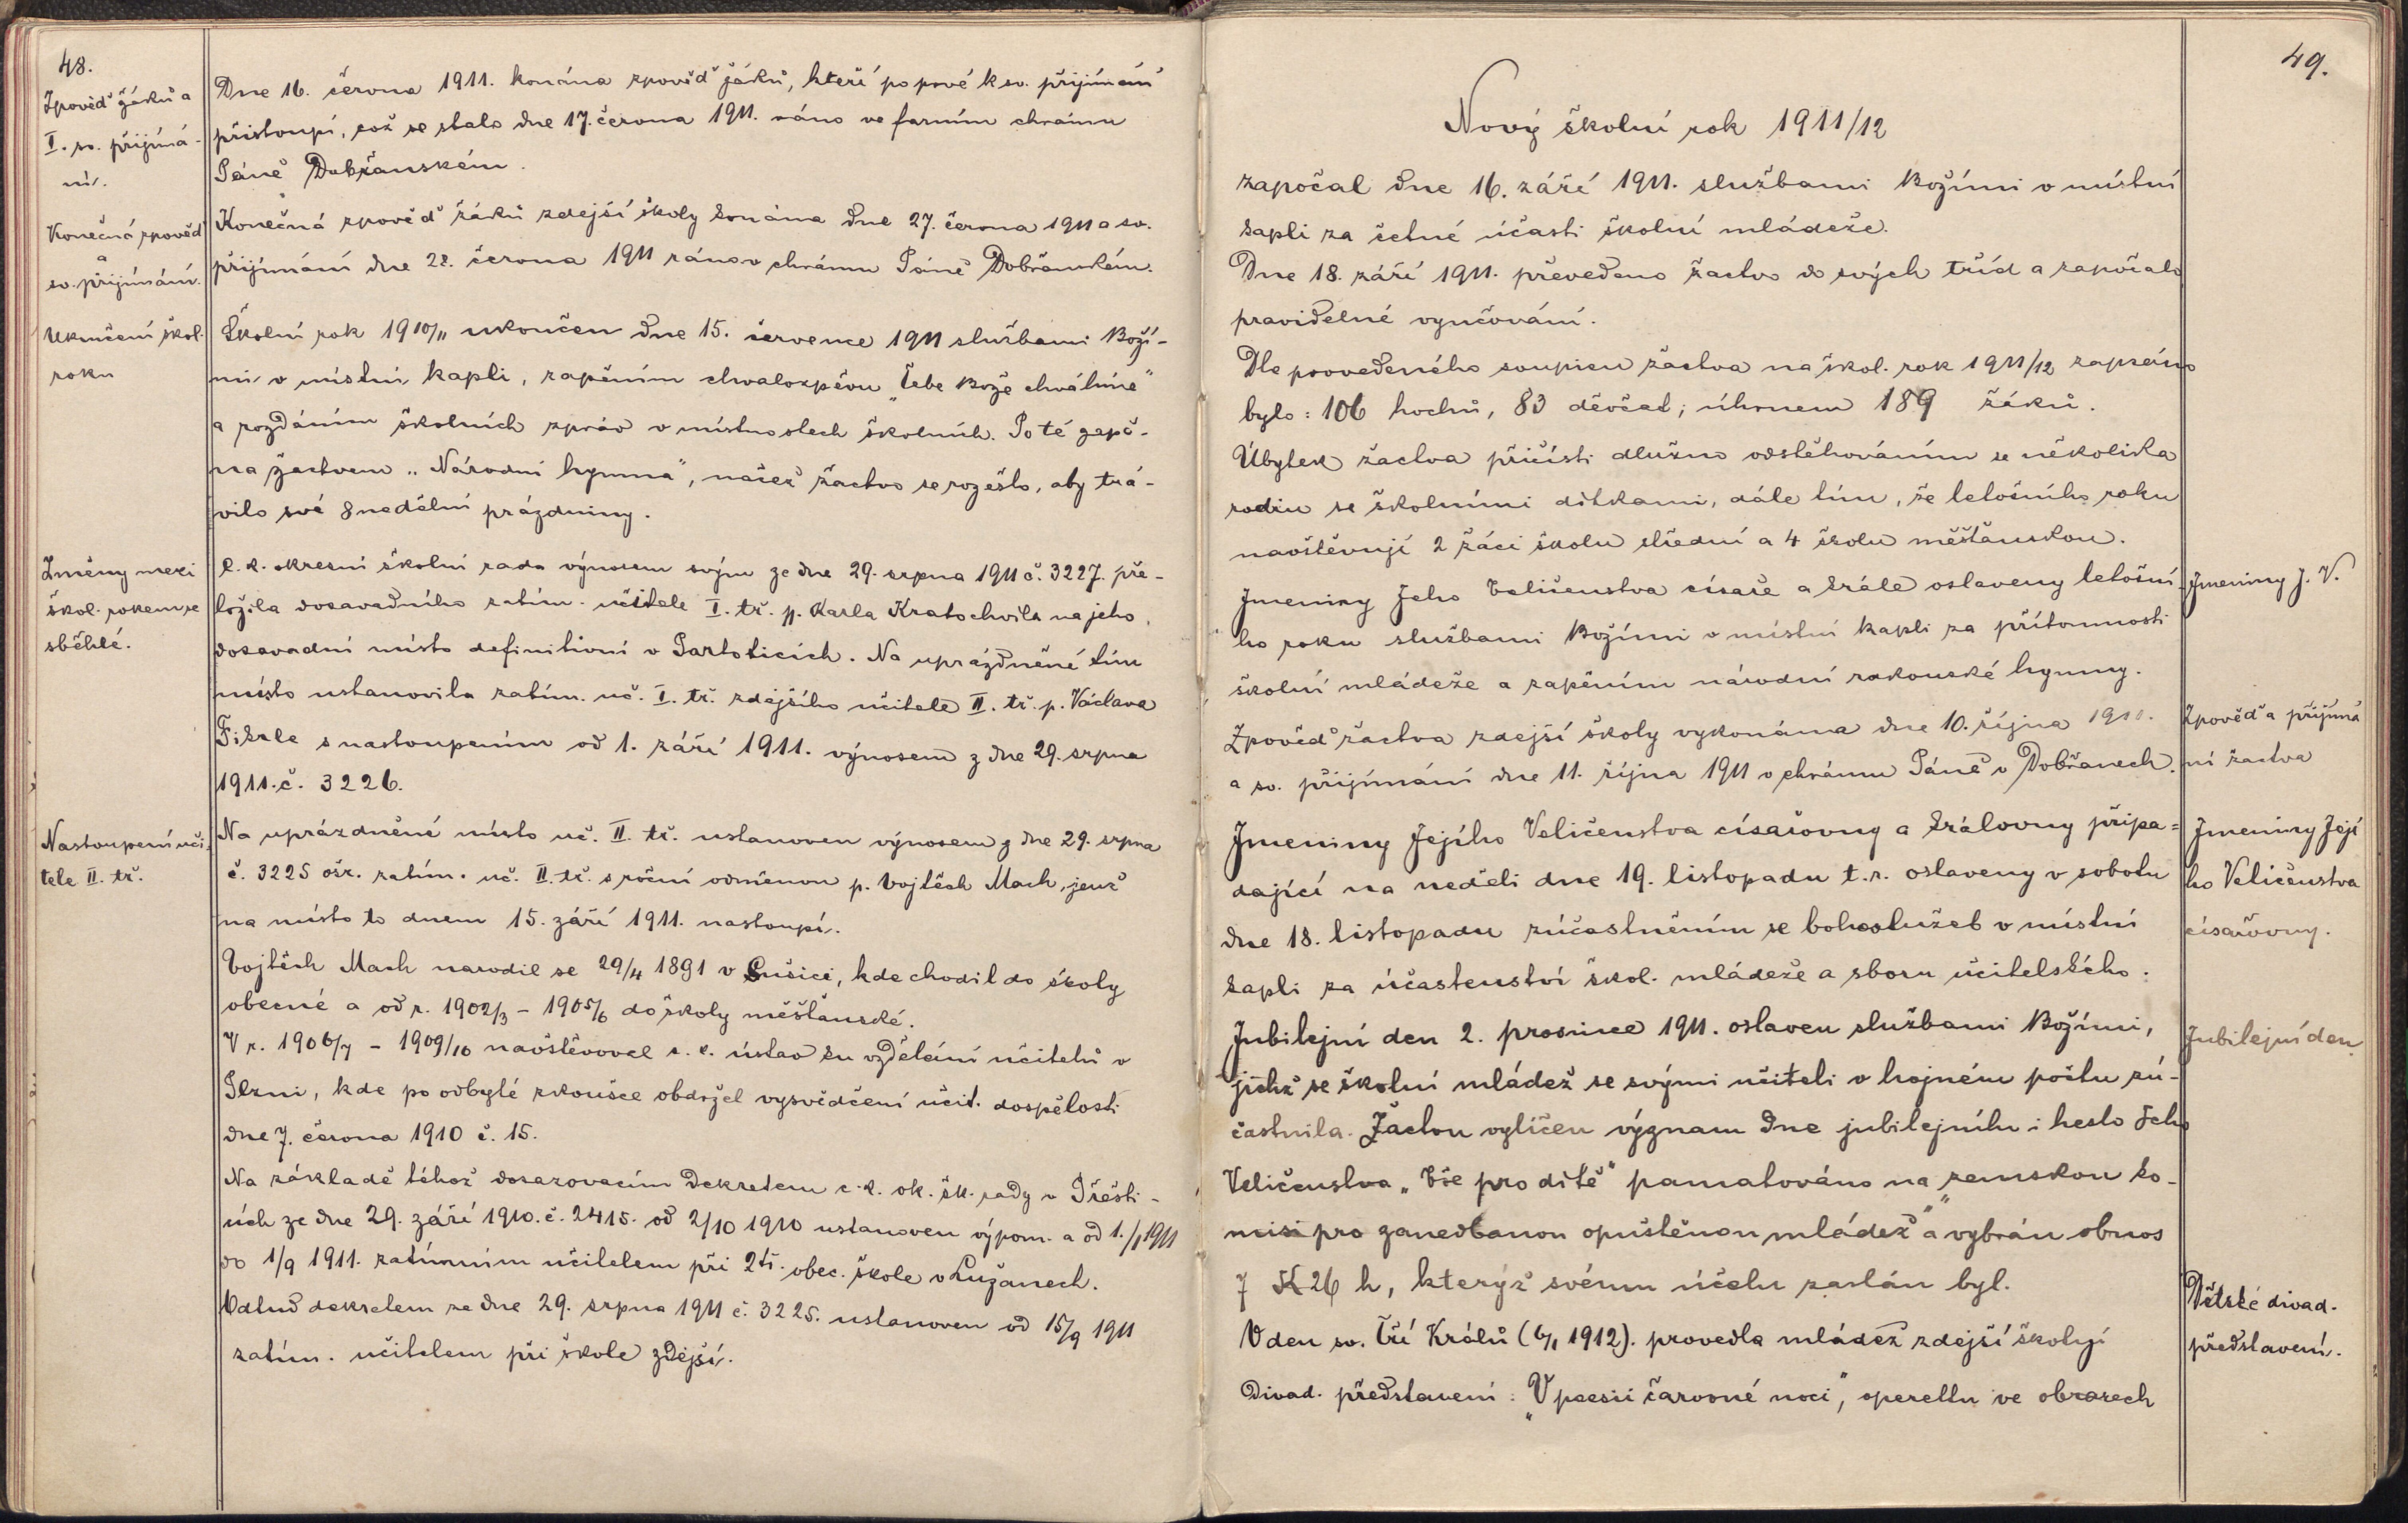 48.
Zpověď žáků a
I. sv. přijímá-
ní.
Dne 16. června 1911. konána zpověď žáků, kteří po prvé k sv. přijímání
přistoupí, což se stalo dne 17. června 1911. ráno ve farním chrámu
Páně Dobřanském.
Konečná zpověď
a
sv. přijímání.
Konečná zpověď žáků zdejší školy konána dne 27. června 1911 a sv.
přijímání dne 28. června 1911 ráno v chrámu Páně Dobřanském.
Ukončení škol.
roku
Školní rok 1910/11 ukončen dne 15. července 1911 službami Boží-
mi v místní kapli, zapěním chvalozpěvu „Tebe Bože chválíme"
a rozdáním školních zpráv v místnostech školních. Po té zapě-
na žactvem „Národní hymna", načež žactvo se rozešlo, aby trá-
vilo své 8nedělní prázdniny.
Změny mezi
škol. rokem se
sběhlé.
C. k. okresní školní rada výnosem svým ze dne 29. srpna 1911 č. 3227. pře-
ložila dosavadního zatím. učitele I. tř. p. Karla Kratochvila na jeho
dosavadní místo definitivní v Partolticích. Na uprázdněné tím
místo ustanovila zatím. uč. I. tř. zdejšího učitele II. tř. p. Václava
Fišrle s nastoupením od 1. září 1911. výnosem z dne 29. srpna
1911. č. 3226.
Nastoupení uči-
tele II. tř.
Na uprázdněné místo uč. II. tř. ustanoven výnosem z dne 29. srpna
č. 3225 ošr. zatím. uč. II. tř. s roční odměnou p. Vojtěch Mach, jenž
na místo to dnem 15. září 1911. nastoupí.
Vojtěch Mach narodil se 29/4 1891 v Sušici, kde chodil do školy
obecné a od r. 1902/3 - 1905/6 do školy měšťanské.
V r. 1906/7 - 1909/10 navštěvoval c. k. ústav ku vzdělání učitelů v
Plzni, kde po odbyté zkoušce obdržel vysvědčení učit. dospělosti
dne 7. června 1910 č. 15.
Na základě téhož dosazovacím dekretem c. k. ok. šk. rady v Přešti-
cích ze dne 29. září 1910. č. 2415. od 2/10 1910 ustanoven výpom. a od 1./1 1911
do 1/9 1911. zatímním učitelem při 2tř. obec. škole v Lužanech.
Odtud dekretem ze dne 29. srpna 1911 č. 3225. ustanoven od 15/9 1911
zatím. učitelem při škole zdejší.
49.
Nový školní rok 1911/12
započal dne 16. září 1911. službami Božími v místní
kapli za četné účasti školní mládeže.
Dne 18. září 1911. převedeno žactvo do svých tříd a započalo
pravidelné vyučování.
Dle provedeného soupisu žactva na škol. rok 1911/12 zapsáno
bylo: 106 hochů, 83 děvčat; úhrnem 189 žáků.
Úbytek žactva přičísti dlužno odstěhováním se několika
rodin se školními dítkami, dále tím, že letošního roku
navštěvují 2 žáci školu střední a 4 školu měšťanskou.
Jmeniny J. V.
Jmeniny Jeho Veličenstva císaře a krále oslaveny letošní-
ho roku službami Božími v místní kapli za přítomnosti
školní mládeže a zapěním národní rakouské hymny.
Zpověď a přijímá
ní žactva
Zpověď žactva zdejší školy vykonána dne 10. října 1911.
a sv. přijímání dne 11. října 1911 v chrámu Páně v Dobřanech.
Jmeniny Její
ho Veličenstva
císařovny.
Jmeniny Jejího Veličenstva císařovny a královny připa=
dající na neděli dne 19. listopadu t. r. oslaveny v sobotu
dne 18. listopadu zúčastněním se bohoslužeb v místní
kapli za účastenství škol. mládeže a sboru učitelského.
Jubilejní den
Jubilejní den 2. prosince 1911. oslaven službami Božími,
jichž se školní mládež se svými učiteli v hojném počtu zú-
častnila. Žactvu vylíčen význam dne jubilejního i heslo Jeho
Veličenstva „Vše pro dítě" pamatováno na „zemskou ko-
misi pro zanedbanou opuštěnou mládež" a vybrán obnos
7 K 26 h, kterýž svému účelu zaslán byl.
Dětské divad.
představení.
V den sv. Tří Králů (6/1 1912). provedla mládež zdejší školy
divad. představení: „V poesii čarovné noci", operettu ve obrazech